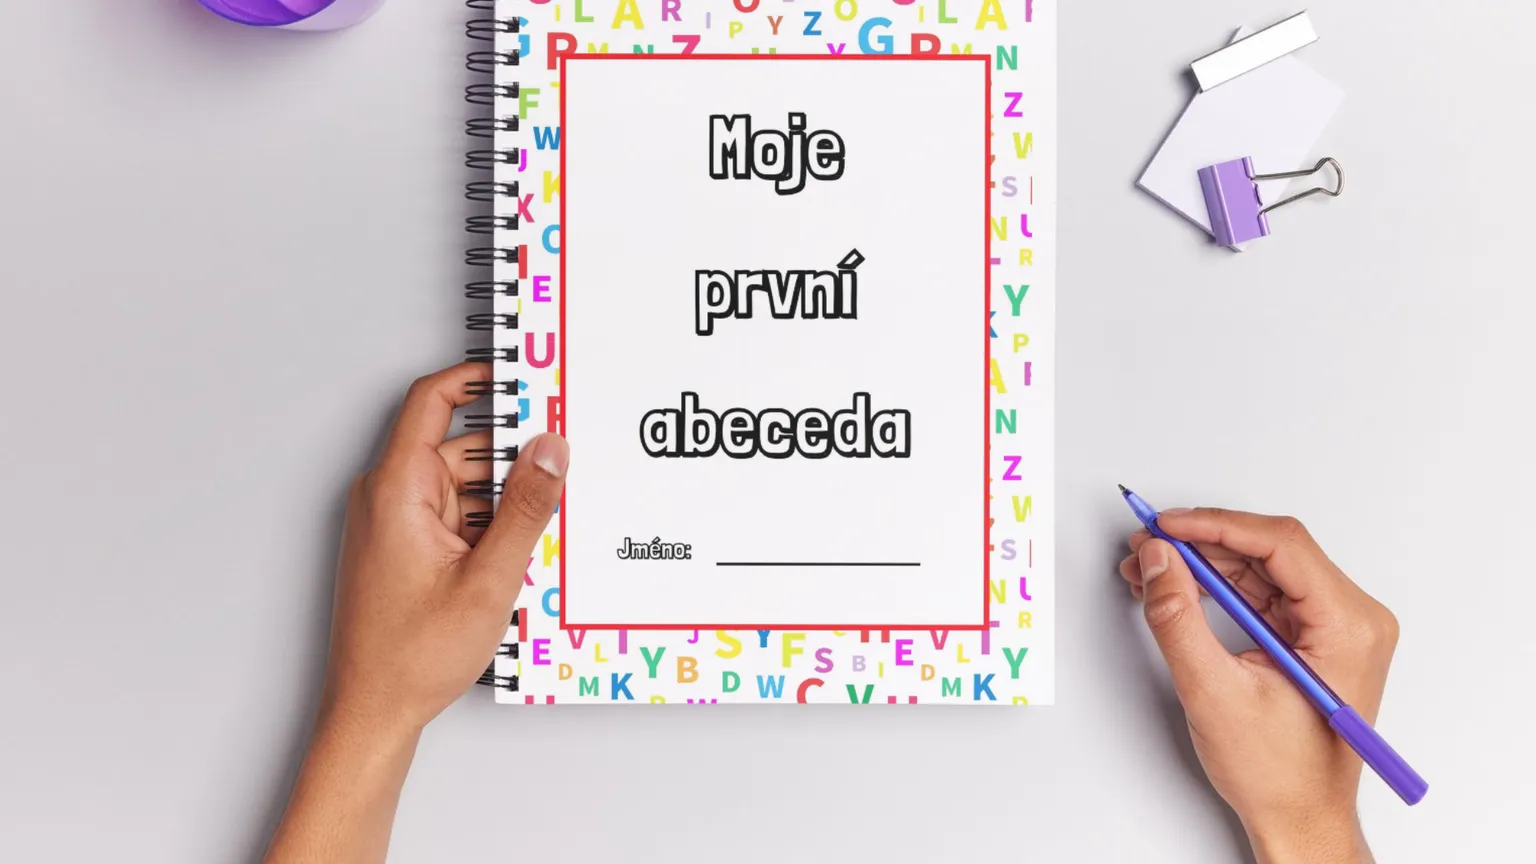 Moje
první
abeceda
Jméno: